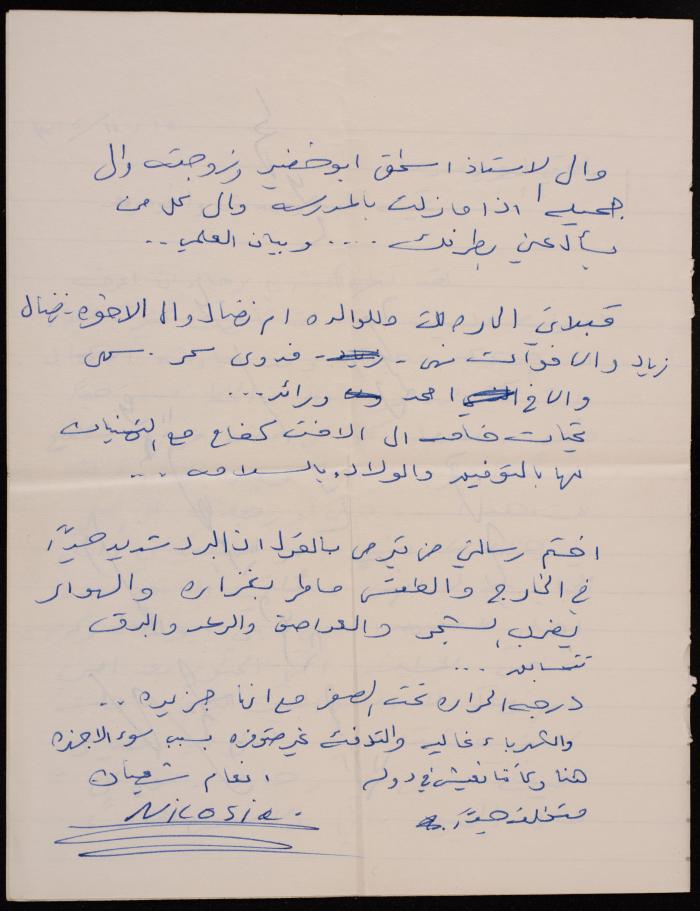 والى الاستاذ اسحق ابو خضير وزوجته والى
جميله اذا ما زلت بالمدرسه والى كل من
يسأل عني بطرفك .... وبيان العلمي ..
قبلاتي الحاره لك وللوالده ام نضال والى الاخوه - نضال
زياد والاخوات نهى - فدوى سحر - سهى
والاخ امجد ورائد ...
تحيات خاصه الى الاخت كفاح مع التمنيات
لها بالتوفيق والولاده بالسلامه ...
اختم رسالتي من قبرص بالقول ان البرد شديد جداً
في الخارج والطقس ماطر بغزاره والهواء
يضرب الشجر والعواصف والرعد والبرق
تتسابق ...
درجه الحراره تحت الصفر مع انها جزيره ..
والكهرباء غاليه والتدفئه غير متوفره بسبب سوء الاجهزه
هنا وكأننا نعيش في دوله
متخلفه جداً.
انعام شعيبات
Nicosia.